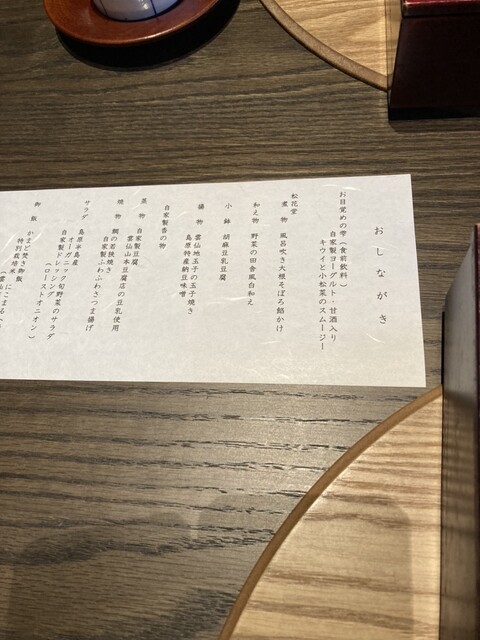 おしながき
お目覚めの雫(食前飲料)
自家製ヨーグルト・甘酒入り
キウイと小松菜のスムージー
松花堂
煮物 風呂吹き大根そぼろ餡かけ
和え物 野菜の田舎風白和え
小鉢 胡麻豆乳豆腐
揚物 雲仙地玉子の玉子焼き
島原特産納豆味噌
自家製香の物
蒸物 自家製豆腐
雲仙山本豆腐店の豆乳使用
焼物 鯛の若狭焼き
自家製ふわふわさつま揚げ
サラダ 島原半島産
オーガニック旬野菜のサラダ
自家製ドレッシング
(ローストオニオン)
御飯 かまど焚き御飯
特別栽培米 にこまる